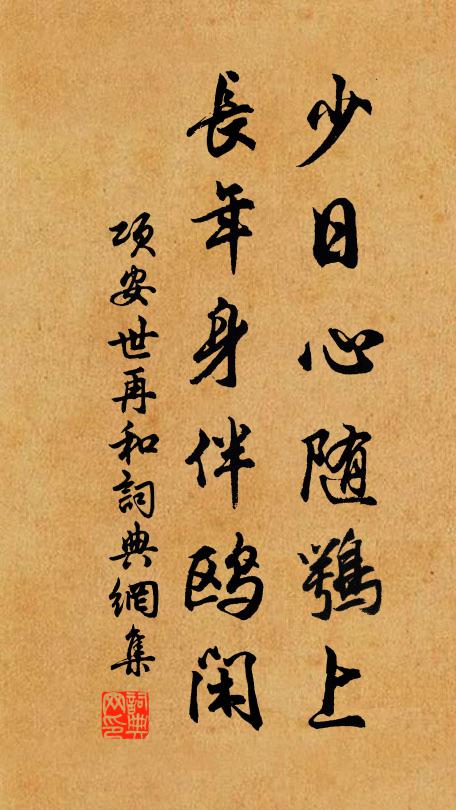 少日心随鶚上
長年身伴鸥闲
项安世再和詞典網集
詞典網印